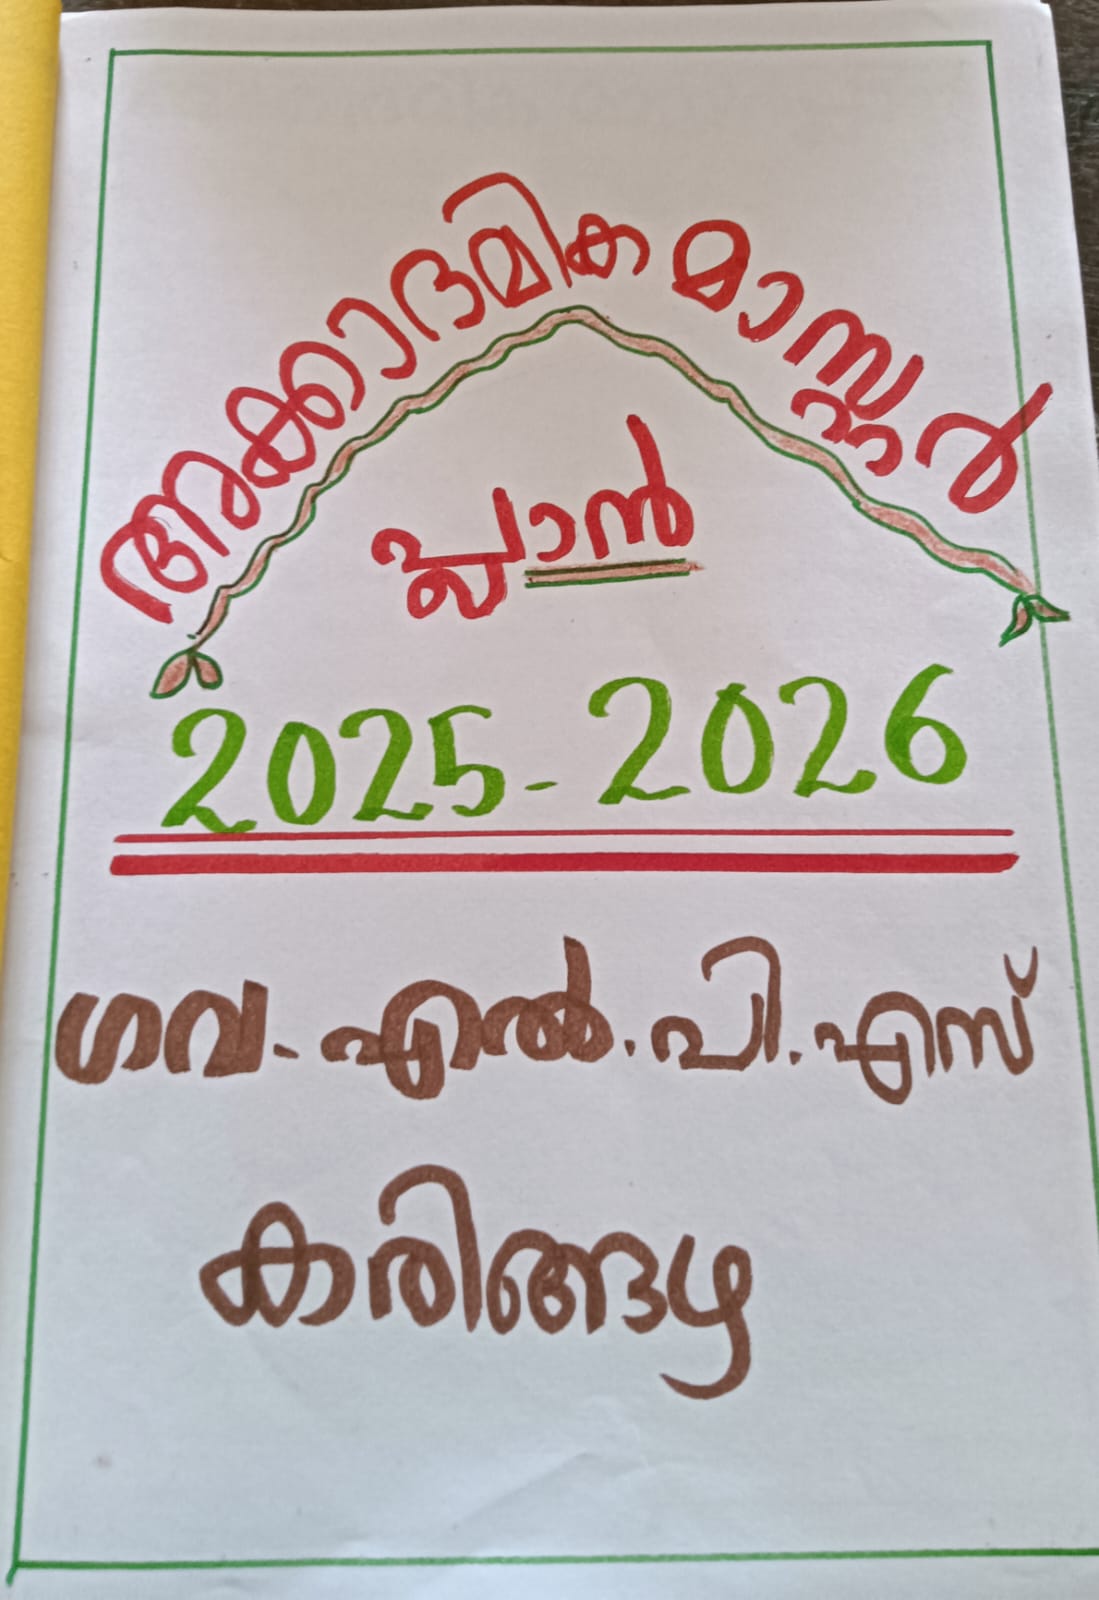 അക്കാദമിക മാസ്റ്റർ
പ്ലാൻ
2025-2026
ഗവ. എൽ. പി. എസ്
കരിങ്ങഴ